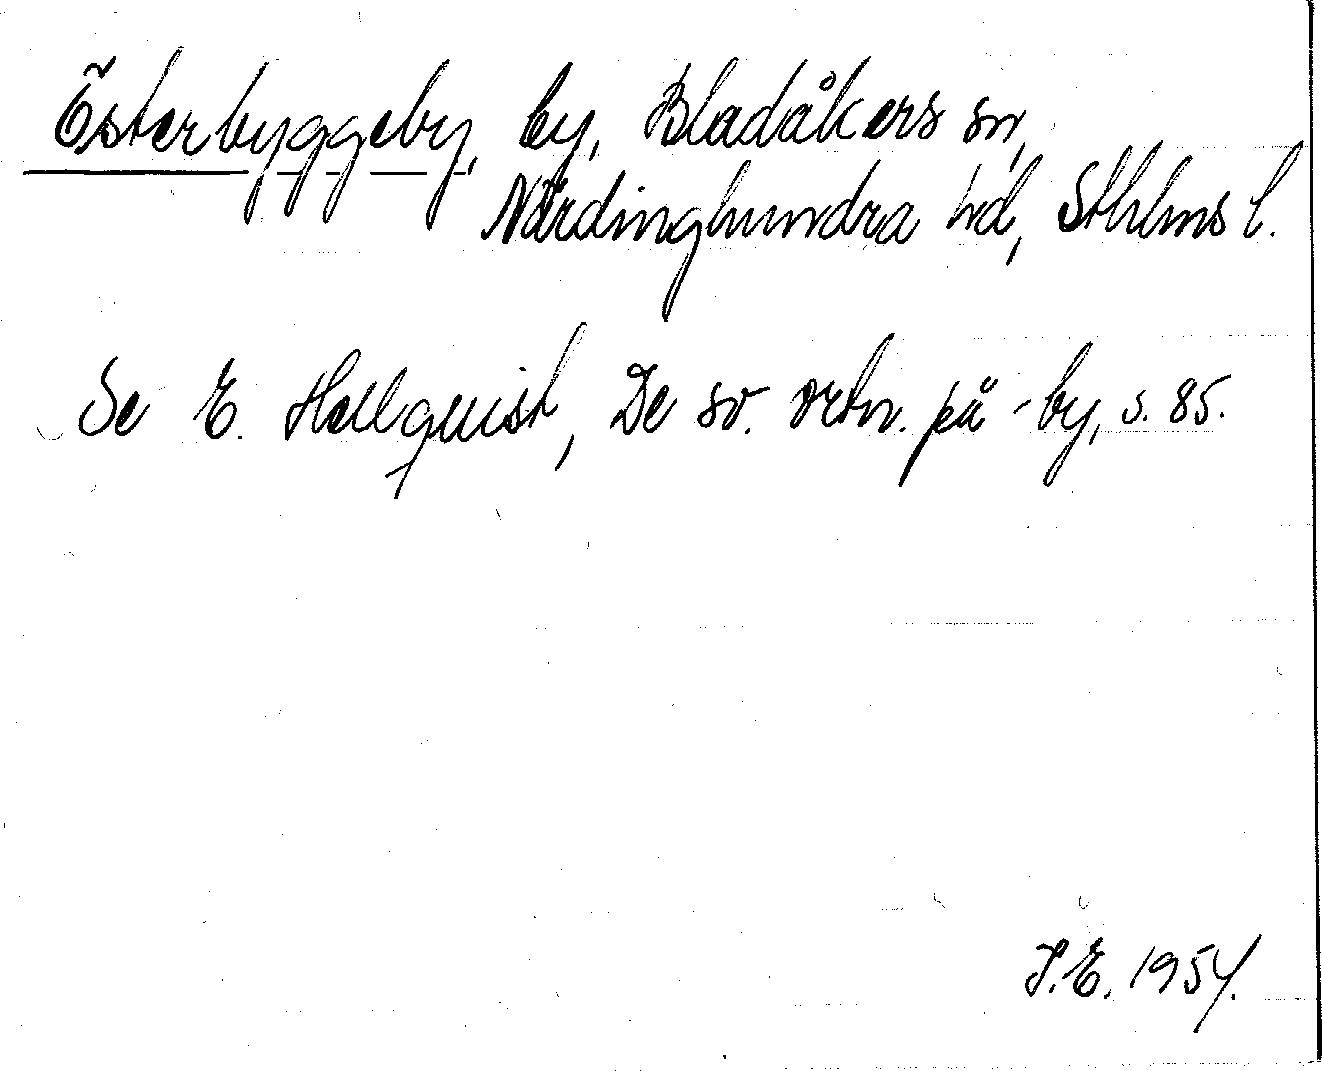 Österbyggeby, by, Bladåkers sn,
Närdinghundra hd, Sthlms l.
Se E. Hellquist, De sv. ortn. på -by, s. 85.
S.E. 1954.